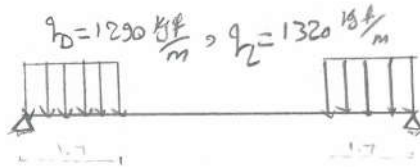 q_D = 1290 kgf/m , q_L = 1320 kgf/m
1.7 1.7